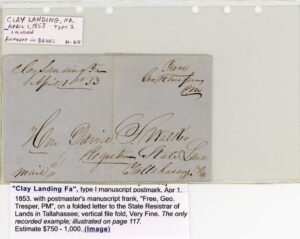 CLAY LANDING, FA.
APRIL 1, 1853 TYPE I
Clay Landing Fa
April 1st 53
Free
Geo. Tresper
PM
Hon David S. Walker
Register State Lands
mail
Tallahassee
"Clay Landing Fa", type I manuscript postmark, Apr 1.
1853. with postmaster's manuscript frank, "Free, Geo.
Tresper, PM", on a folded letter to the State Registrar of
Lands in Tallahassee; vertical file fold, Very Fine. The only
recorded example; illustrated on page 117.
Estimate $750 - 1,000. (Image)